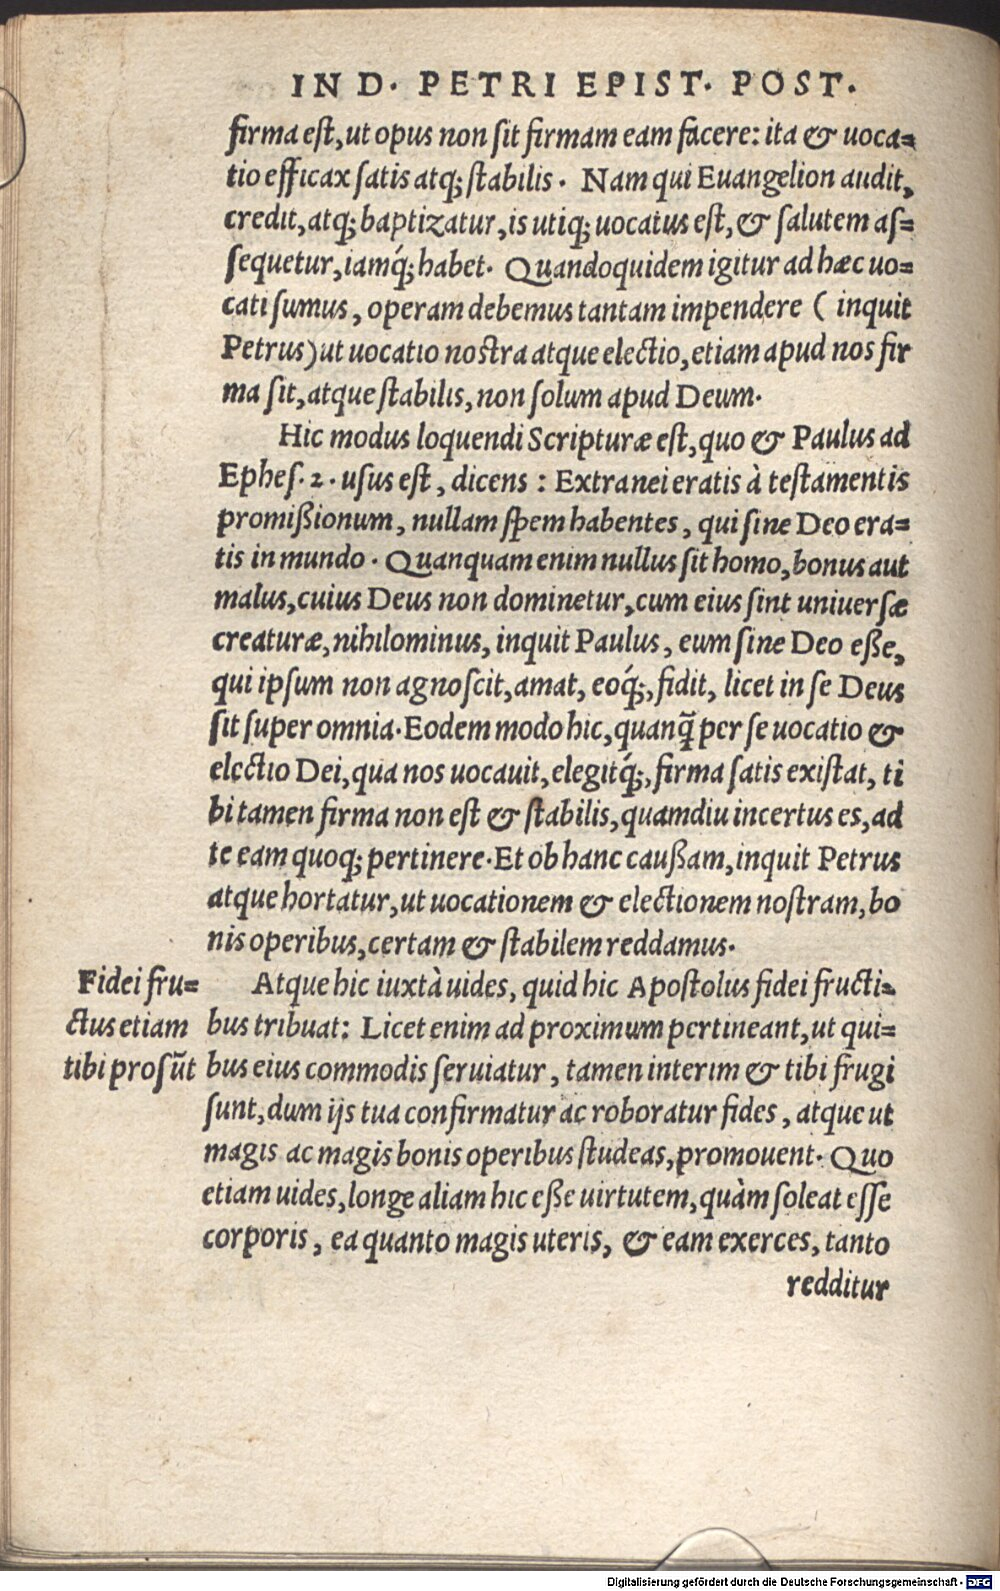 IN D. PETRI EPIST. POST.
firma eſt, ut opus non ſit firmam eam facere: ita & uoca=
tio efficax ſatis atq; ſtabilis. Nam qui Euangelion audit,
credit, atq; baptizatur, is utiq; uocatus eſt, & ſalutem aſ=
ſequetur, iamq́; habet. Quandoquidem igitur ad hæc uo=
cati ſumus, operam debemus tantam impendere ( inquit
Petrus) ut uocatio noſtra atque electio, etiam apud nos fir
ma ſit, atque ſtabilis, non ſolum apud Deum.
Hic modus loquendi Scripturæ eſt, quo & Paulus ad
Epheſ. 2. uſus eſt, dicens : Extranei eratis à teſtamentis
promißionum, nullam ſpem habentes, qui ſine Deo era=
tis in mundo. Quanquam enim nullus ſit homo, bonus aut
malus, cuius Deus non dominetur, cum eius ſint uniuerſæ
creaturæ, nihilominus, inquit Paulus, eum ſine Deo eße,
qui ipſum non agnoſcit, amat, eoq́;, fidit, licet in ſe Deus
ſit ſuper omnia. Eodem modo hic, quanq̃ per ſe uocatio &
electio Dei, qua nos uocauit, elegitq́;, firma ſatis exiſtat, ti
bi tamen firma non eſt & ſtabilis, quamdiu incertus es, ad
te eam quoq; pertinere. Et ob hanc caußam, inquit Petrus
atque hortatur, ut uocationem & electionem noſtram, bo
nis operibus, certam & ſtabilem reddamus.
Fidei fru=
ctus etiam
tibi proſūt
Atque hic iuxtà uides, quid hic Apoſtolus fidei fructi=
bus tribuat: Licet enim ad proximum pertineant, ut qui=
bus eius commodis ſeruiatur, tamen interim & tibi frugi
ſunt, dum ijs tua confirmatur ac roboratur fides, atque ut
magis ac magis bonis operibus ſtudeas, promouent. Quo
etiam uides, longe aliam hic eße uirtutem, quàm ſoleat eſſe
corporis, ea quanto magis uteris, & eam exerces, tanto
redditur
Digitalisierung gefördert durch die Deutsche Forschungsgemeinschaft - DFG